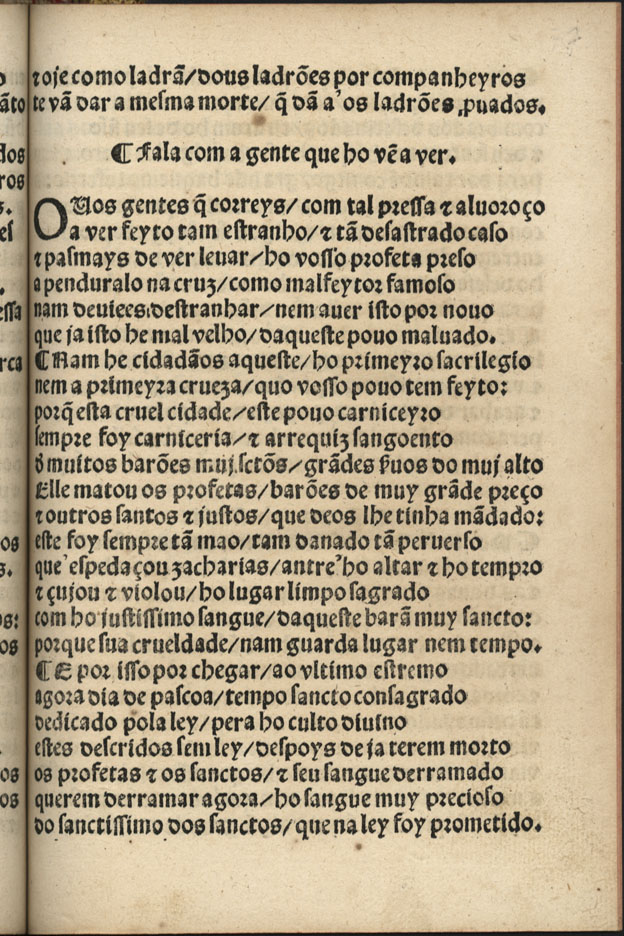 ⁊ oje como ladrã/dous ladrões por companheyros
te vã dar a mesma morte/ q̃ dã a'os ladrões ꝓuados.
¶ Fala com a gente que ho vẽ a ver.
O Uos gentes q̃ correys/ com tal pressa ⁊ aluoroço
a ver feyto tam estranho/⁊ tã desastrado caso
⁊ pasmays de ver leuar/ho vosso profeta preso
a penduralo na cruz/como malfeytor famoso
nam deuiees destranhar/nem auer isto por nouo
que ja isto he mal velho/daqueste pouo maluado.
¶ Nam he cidadãos aqueste/ho primeyro sacrilegio
nem a primeyra crueza/quo vosso pouo tem feyto:
porq̃ esta cruel cidade/este pouo carniceyro
sempre foy carniceria/⁊ arrequiz sangoento
d̃ muitos barões muj sctõs/grãdes ẞuos do muj alto
Elle matou os profetas/barões de muy grãde preço
⁊ outros santos ⁊ justos/que deos lhe tinha mãdado:
este foy sempre tã mao/tam danado tã peruerso
que'espedaçou zacharias/antre'ho altar ⁊ ho tempro
⁊ çujou ⁊ violou/ho lugar limpo sagrado
com ho justissimo sangue/daqueste barã muy sancto:
porque sua crueldade/nam guarda lugar nem tempo.
¶ E por isso por chegar/ao vltimo estremo
agora dia de pascoa/tempo sancto consagrado
dedicado pola ley/pera ho culto diuino
estes descridos sem ley/despoys de ja terem morto
os profetas ⁊ os sanctos/⁊ seu sangue derramado
querem derramar agora/ho sangue muy precioso
do sanctissimo dos sanctos/que na ley foy prometido.